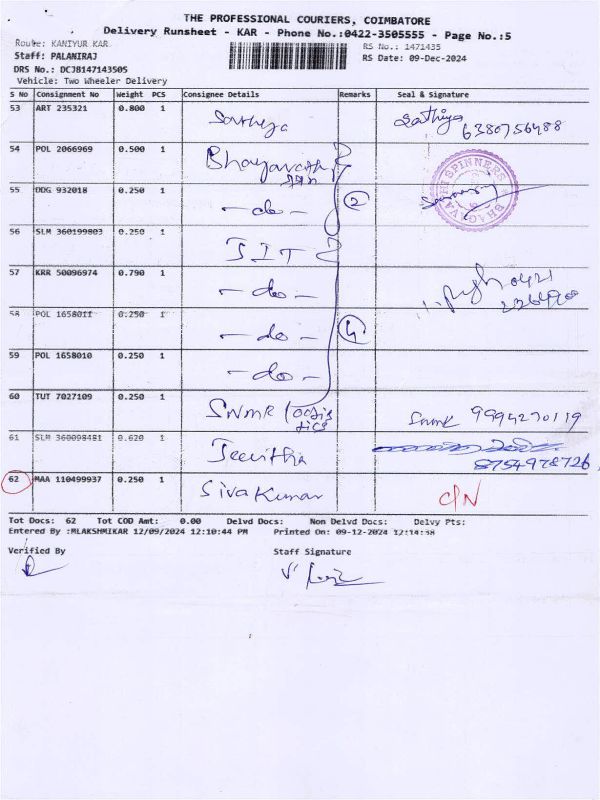 THE PROFESSIONAL COURIERS, COIMBATORE
Delivery Runsheet - KAR - Phone No.:0422-3505555 - Page No.:5
Route: KANIYUR KAR
RS No.: 1471435
Staff: PALANIRAJ
RS Date: 09-Dec-2024
DRS No.: DCJB147143505
Vehicle: Two Wheeler Delivery
S No Consignment No Weight PCS Consignee Details Remarks Seal & Signature
53 ART 235321 0.800 1 Sathiya Sathiya 6380756488
54 POL 2066969 0.500 1 Bhagavathi
SPINNERS BHAGAVATHI
55 DDG 932018 0.250 1 - do - 2
56 SLM 360199803 0.250 1 JIT
57 KRR 50096974 0.790 1 - do - 0421
58 POL 1658011 0.250 1 - do - 4
59 POL 1658010 0.250 1 - do -
60 TUT 7027109 0.250 1 SNMR Logistics SNMR 9994270119
61 SLM 360098481 0.620 1 Jeevitha 8754978726
62 MAA 110499937 0.250 1 Siva Kumar C/N
Tot Docs: 62 Tot COD Amt: 0.00 Delvd Docs: Non Delvd Docs: Delvy Pts:
Entered By :MLAKSHMIKAR 12/09/2024 12:10:44 PM Printed On: 09-12-2024 12:14:38
Verified By Staff Signature